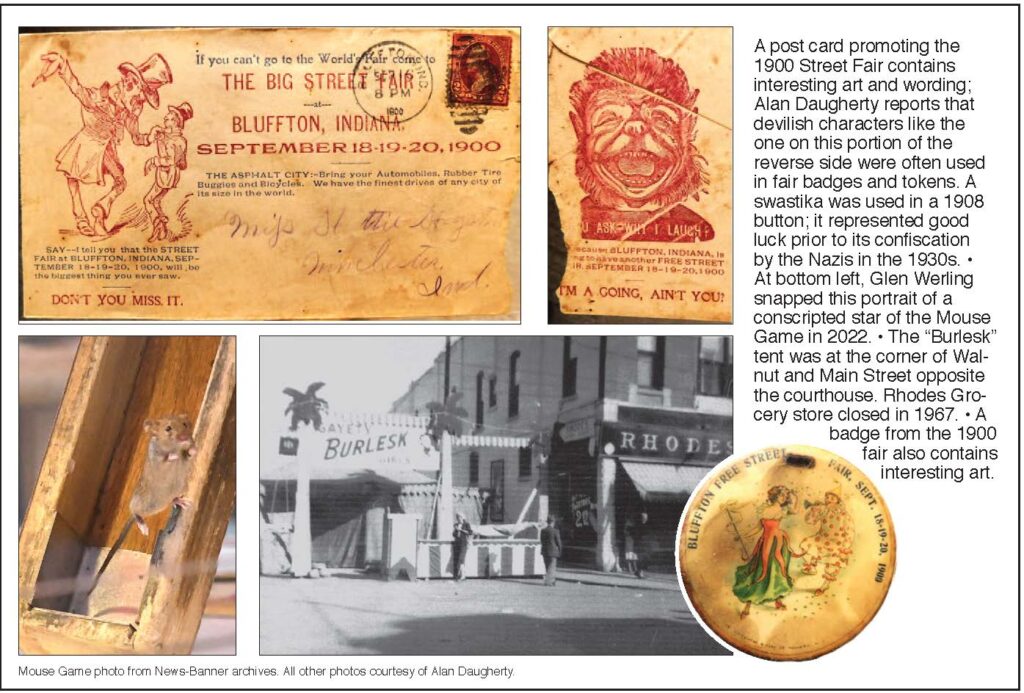 If you can't go to the World's Fair come to
THE BIG STREET FAIR
—at—
BLUFFTON, INDIANA.
SEPTEMBER 18-19-20, 1900
THE ASPHALT CITY:-Bring your Automobiles, Rubber Tire
Buggies and Bicycles. We have the finest drives of any city of
its size in the world.
SEP 16
8 PM
1900
Miss
Winchester
Ind.
SAY--I tell you that the STREET
FAIR at BLUFFTON, INDIANA, SEP-
TEMBER 18-19-20, 1900, will be
the biggest thing you ever saw.
DON'T YOU MISS IT.
U ASK WHY I LAUGH?
ecause BLUFFTON, INDIANA, is
ng to have another FREE STREET
IR, SEPTEMBER 18-19-20, 1900
I'M A GOING, AIN'T YOU?
A post card promoting the
1900 Street Fair contains
interesting art and wording;
Alan Daugherty reports that
devilish characters like the
one on this portion of the
reverse side were often used
in fair badges and tokens. A
swastika was used in a 1908
button; it represented good
luck prior to its confiscation
by the Nazis in the 1930s. •
At bottom left, Glen Werling
snapped this portrait of a
conscripted star of the Mouse
Game in 2022. • The “Burlesk”
tent was at the corner of Wal-
nut and Main Street opposite
the courthouse. Rhodes Gro-
cery store closed in 1967. • A
badge from the 1900
fair also contains
interesting art.
GAYETY
BURLESK
GIRLS
RHODES
BLUFFTON FREE STREET FAIR, SEPT. 18-19-20, 1900
Mouse Game photo from News-Banner archives. All other photos courtesy of Alan Daugherty.